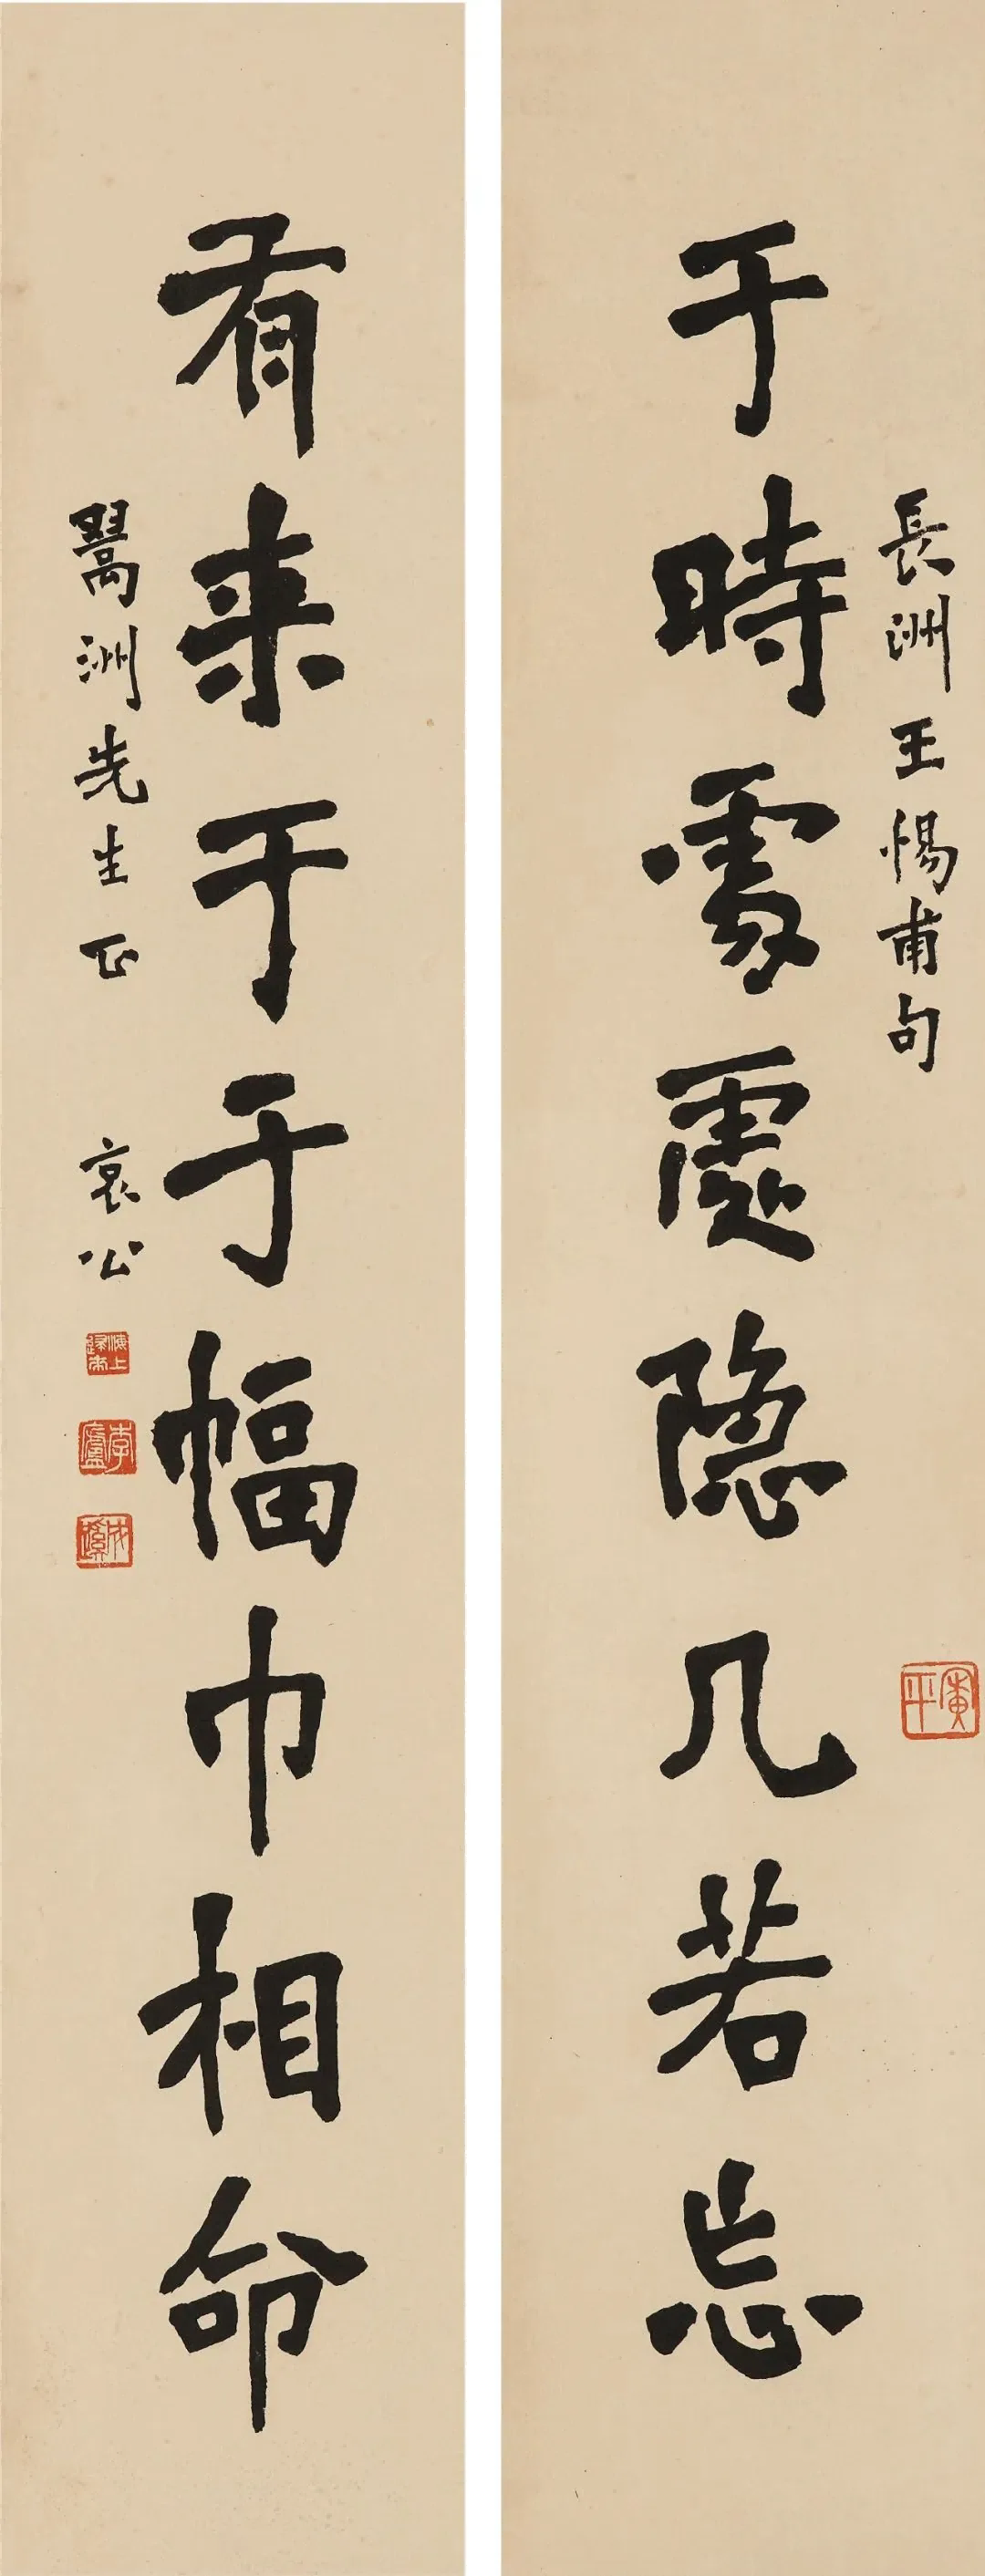 長洲王惕甫句
于時處處隐几若忘
有来于于幅巾相命
翯洲先生正 哀公